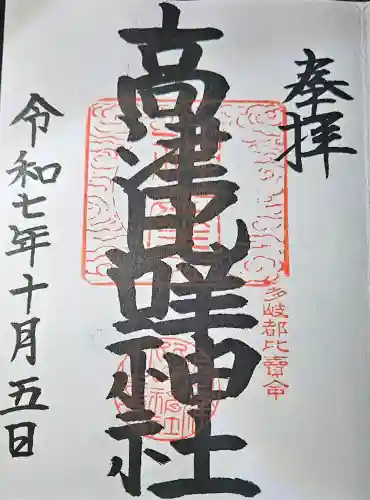 奉拝
多岐都比賣命
高津比咩神社
令和七年十月五日